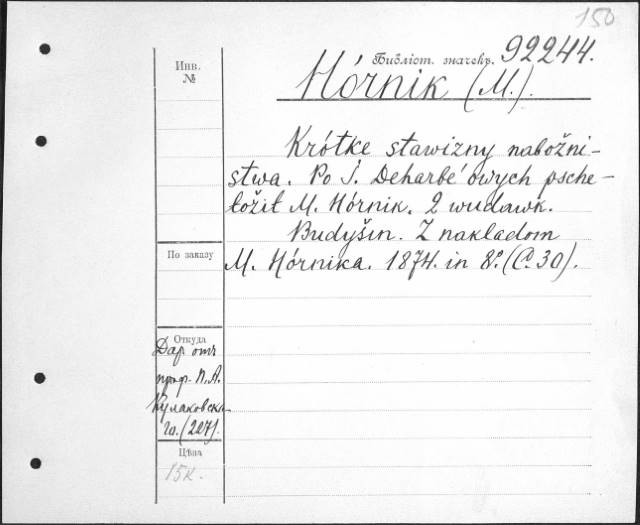 150
Инв.
№
Библіот. значекъ. 92244.
Hórnik (M.).
Krótke stawizny nabožni-
stwa. Po J. Deharbé'owych psche-
ložił M. Hórnik. 2 wudawk.
Budyšin. Z nakładom
M. Hórnika. 1874. in 8º. (C. 30).
По заказу
Откуда
Дар. отъ
проф. П. А.
Кулаковска-
го. (207).
Цѣна
15к.